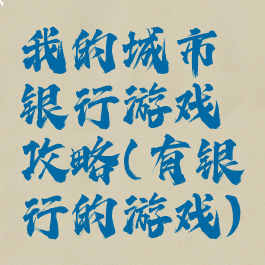 我的城市
银行游戏
攻略(有银
行的游戏)